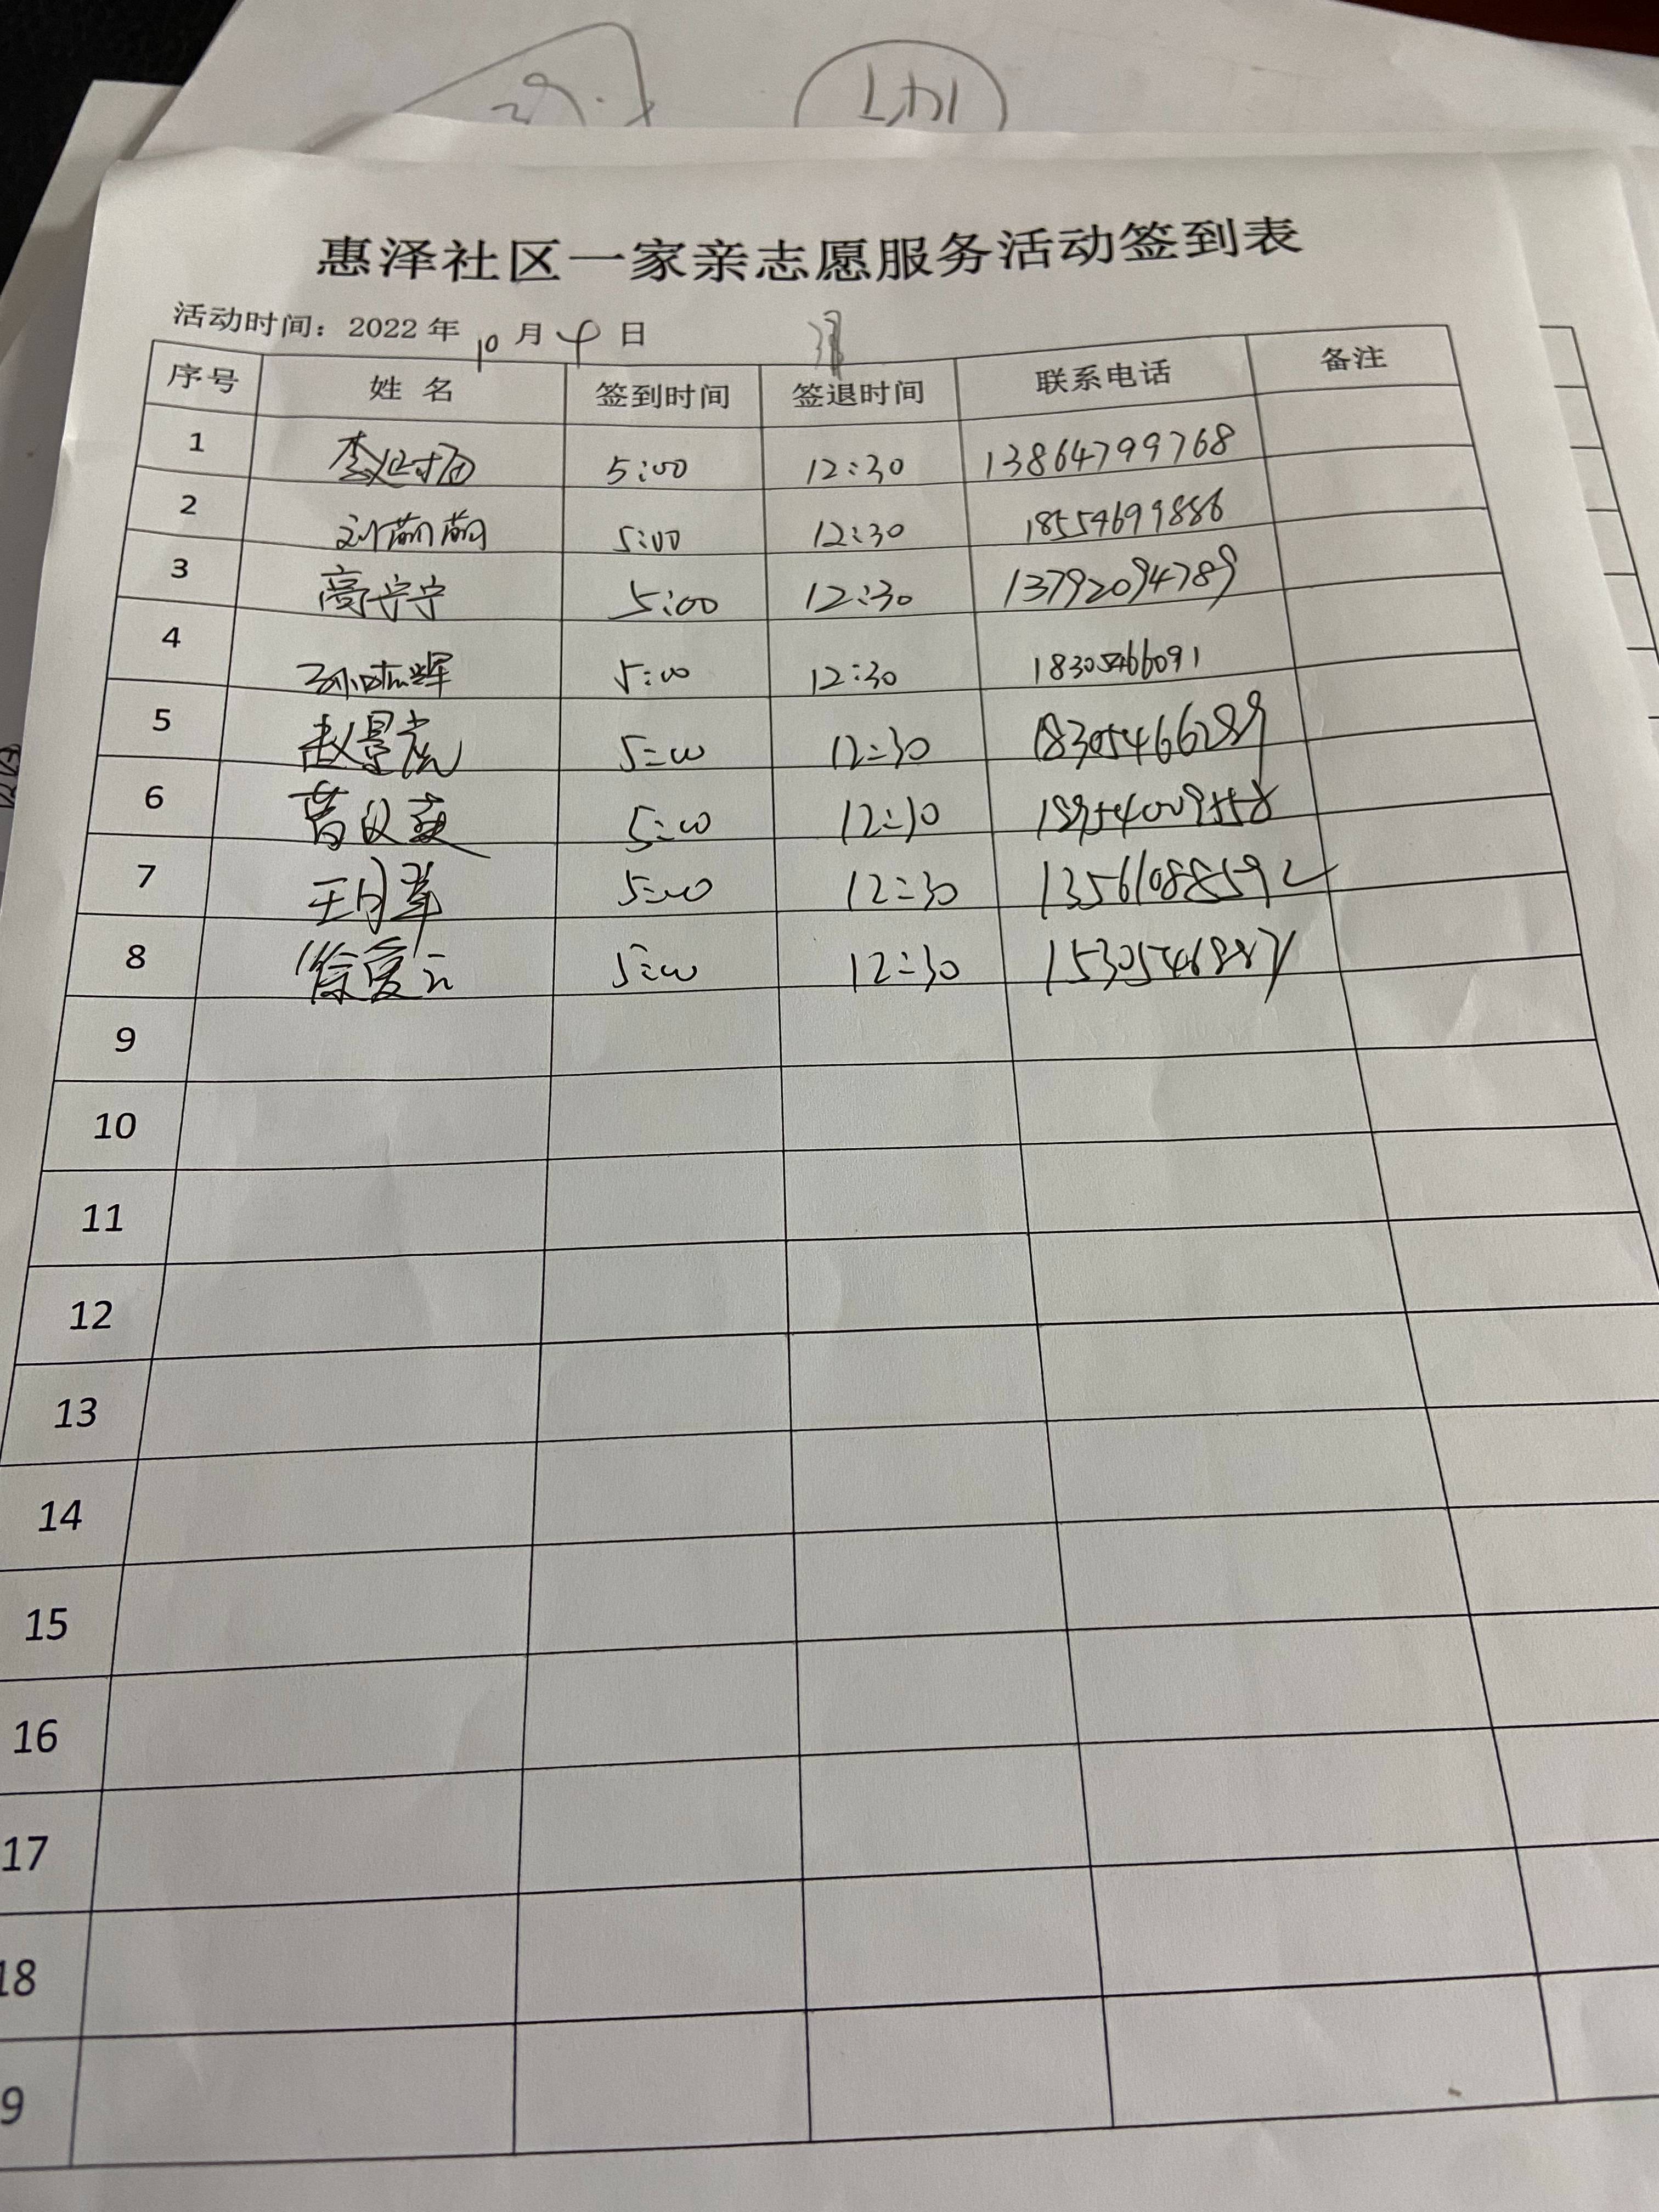 惠泽社区一家亲志愿服务活动签到表
活动时间：2022年 10 月 4 日
序号 姓名 签到时间 签退时间 联系电话 备注
1 李延团 5:00 12:30 13864799768
2 刘萌萌 5:00 12:30 18554699886
3 高宁宁 5:00 12:30 13792094789
4 孙晓辉 5:00 12:30 18305466091
5 赵景虎 5:00 12:30 18305466289
6 5:00 12:30
7 王月華 5:00 12:30 13561088592
8 徐爱云 5:00 12:30
9
10
11
12
13
14
15
16
17
18
9